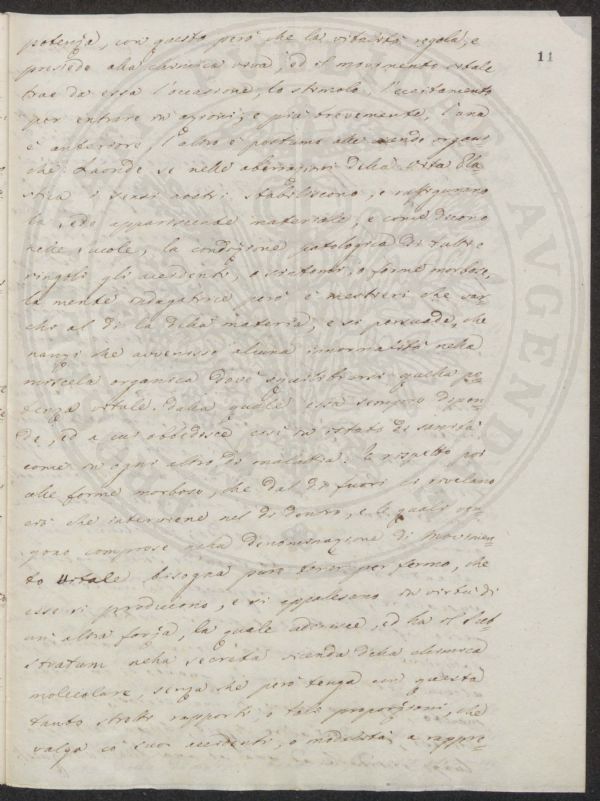 11
potenza, con questo però che la vitalità regola, e
presiede alla chimica viva, ed il movimento vitale
trae da essa l'occasione, lo stimolo, l'eccitamento
per entrare in azioni; e più brevemente, l'una
è anteriore, l'altro è postumo alle vicende organi-
che. Laonde se nelle aberrazioni della vita Pla
stica i sensi nostri stabiliscono, e raffigurano
la sede appariscente materiale, e come dicono
nelle scuole, la condizione patologica di tutti e
singoli gli accidenti, o sintomi, o forme morbose,
la mente indagatrice però è mestieri che var-
chi al di là della materia, e si persuada, che
nanzi che avvenisse alcuna innormalità nella
miscela organica dovè squilibrarsi quella po-
tenza vitale dalla quale essa sempre dipen-
de, ed a cui obbedisce così in istato di sanità
come in ogni altro di malattia. In rispetto poi
alle forme morbose, che dal di fuori ci rivelano
ciò che interviene nel di dentro, e le quali ven-
gono comprese nella denominazione di Movimen-
to vitale bisogna pure tener per fermo, che
esse si producono, e si appalesano in virtù di
un altra forza, la quale aderisce, ed ha il sub-
stratum nella secreta vicenda della chimica
molecolare, senza che però tenga con questa
tanto stretti rapporti o tali proporzioni, che
valga co' suoi accidenti, o modalità a rappre-